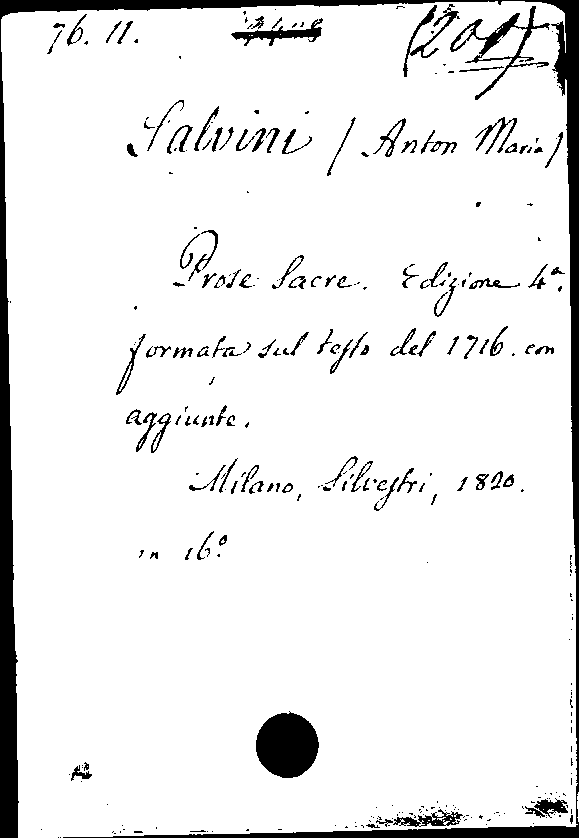 76. 11. (201)
Salvini (Anton Maria)
Prose Sacre. Edizione 4ª.
formata sul testo del 1716. con
aggiunte.
Milano, Silvestri, 1820.
in 16º